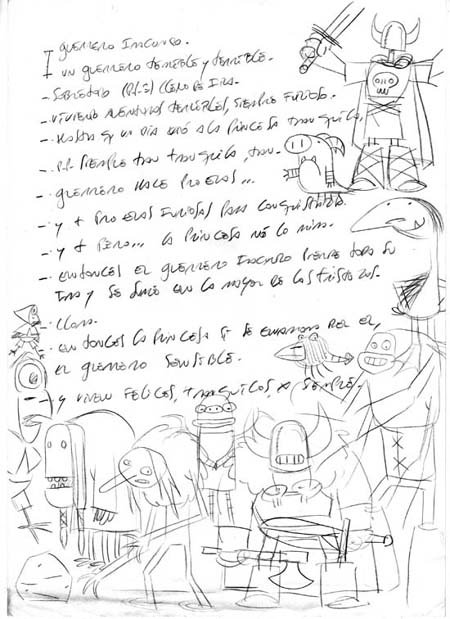 I GUERRERO IRACUNDO.
UN GUERRERO TERRIBLE Y TERRIBLE.
- SOBRETODO LLENO DE IRA.
- VIVIENDO AVENTURAS TERRIBLES, SIEMPRE FURIOSO.
- HASTA QUE UN DIA VIÓ A LA PRINCESA TRANQUILA,
- SIEMPRE TAN TRANQUILA, TAN..
- GUERRERO HACE PROEZAS...
- Y + PROEZAS FURIOSAS PARA CONQUISTARLA.
- Y + PERO... LA PRINCESA NO LO MIRA.
- ENTONCES EL GUERRERO IRACUNDO PIERDE TODA SU
IRA Y SE SUME EN LA MAYOR DE LAS TRISTEZAS.
- LLORA.
- ENTONCES LA PRINCESA SI SE ENAMORA DE EL,
EL GUERRERO SENSIBLE.
- Y VIVEN FELICES, TRANQUILOS, X SIEMPRE.